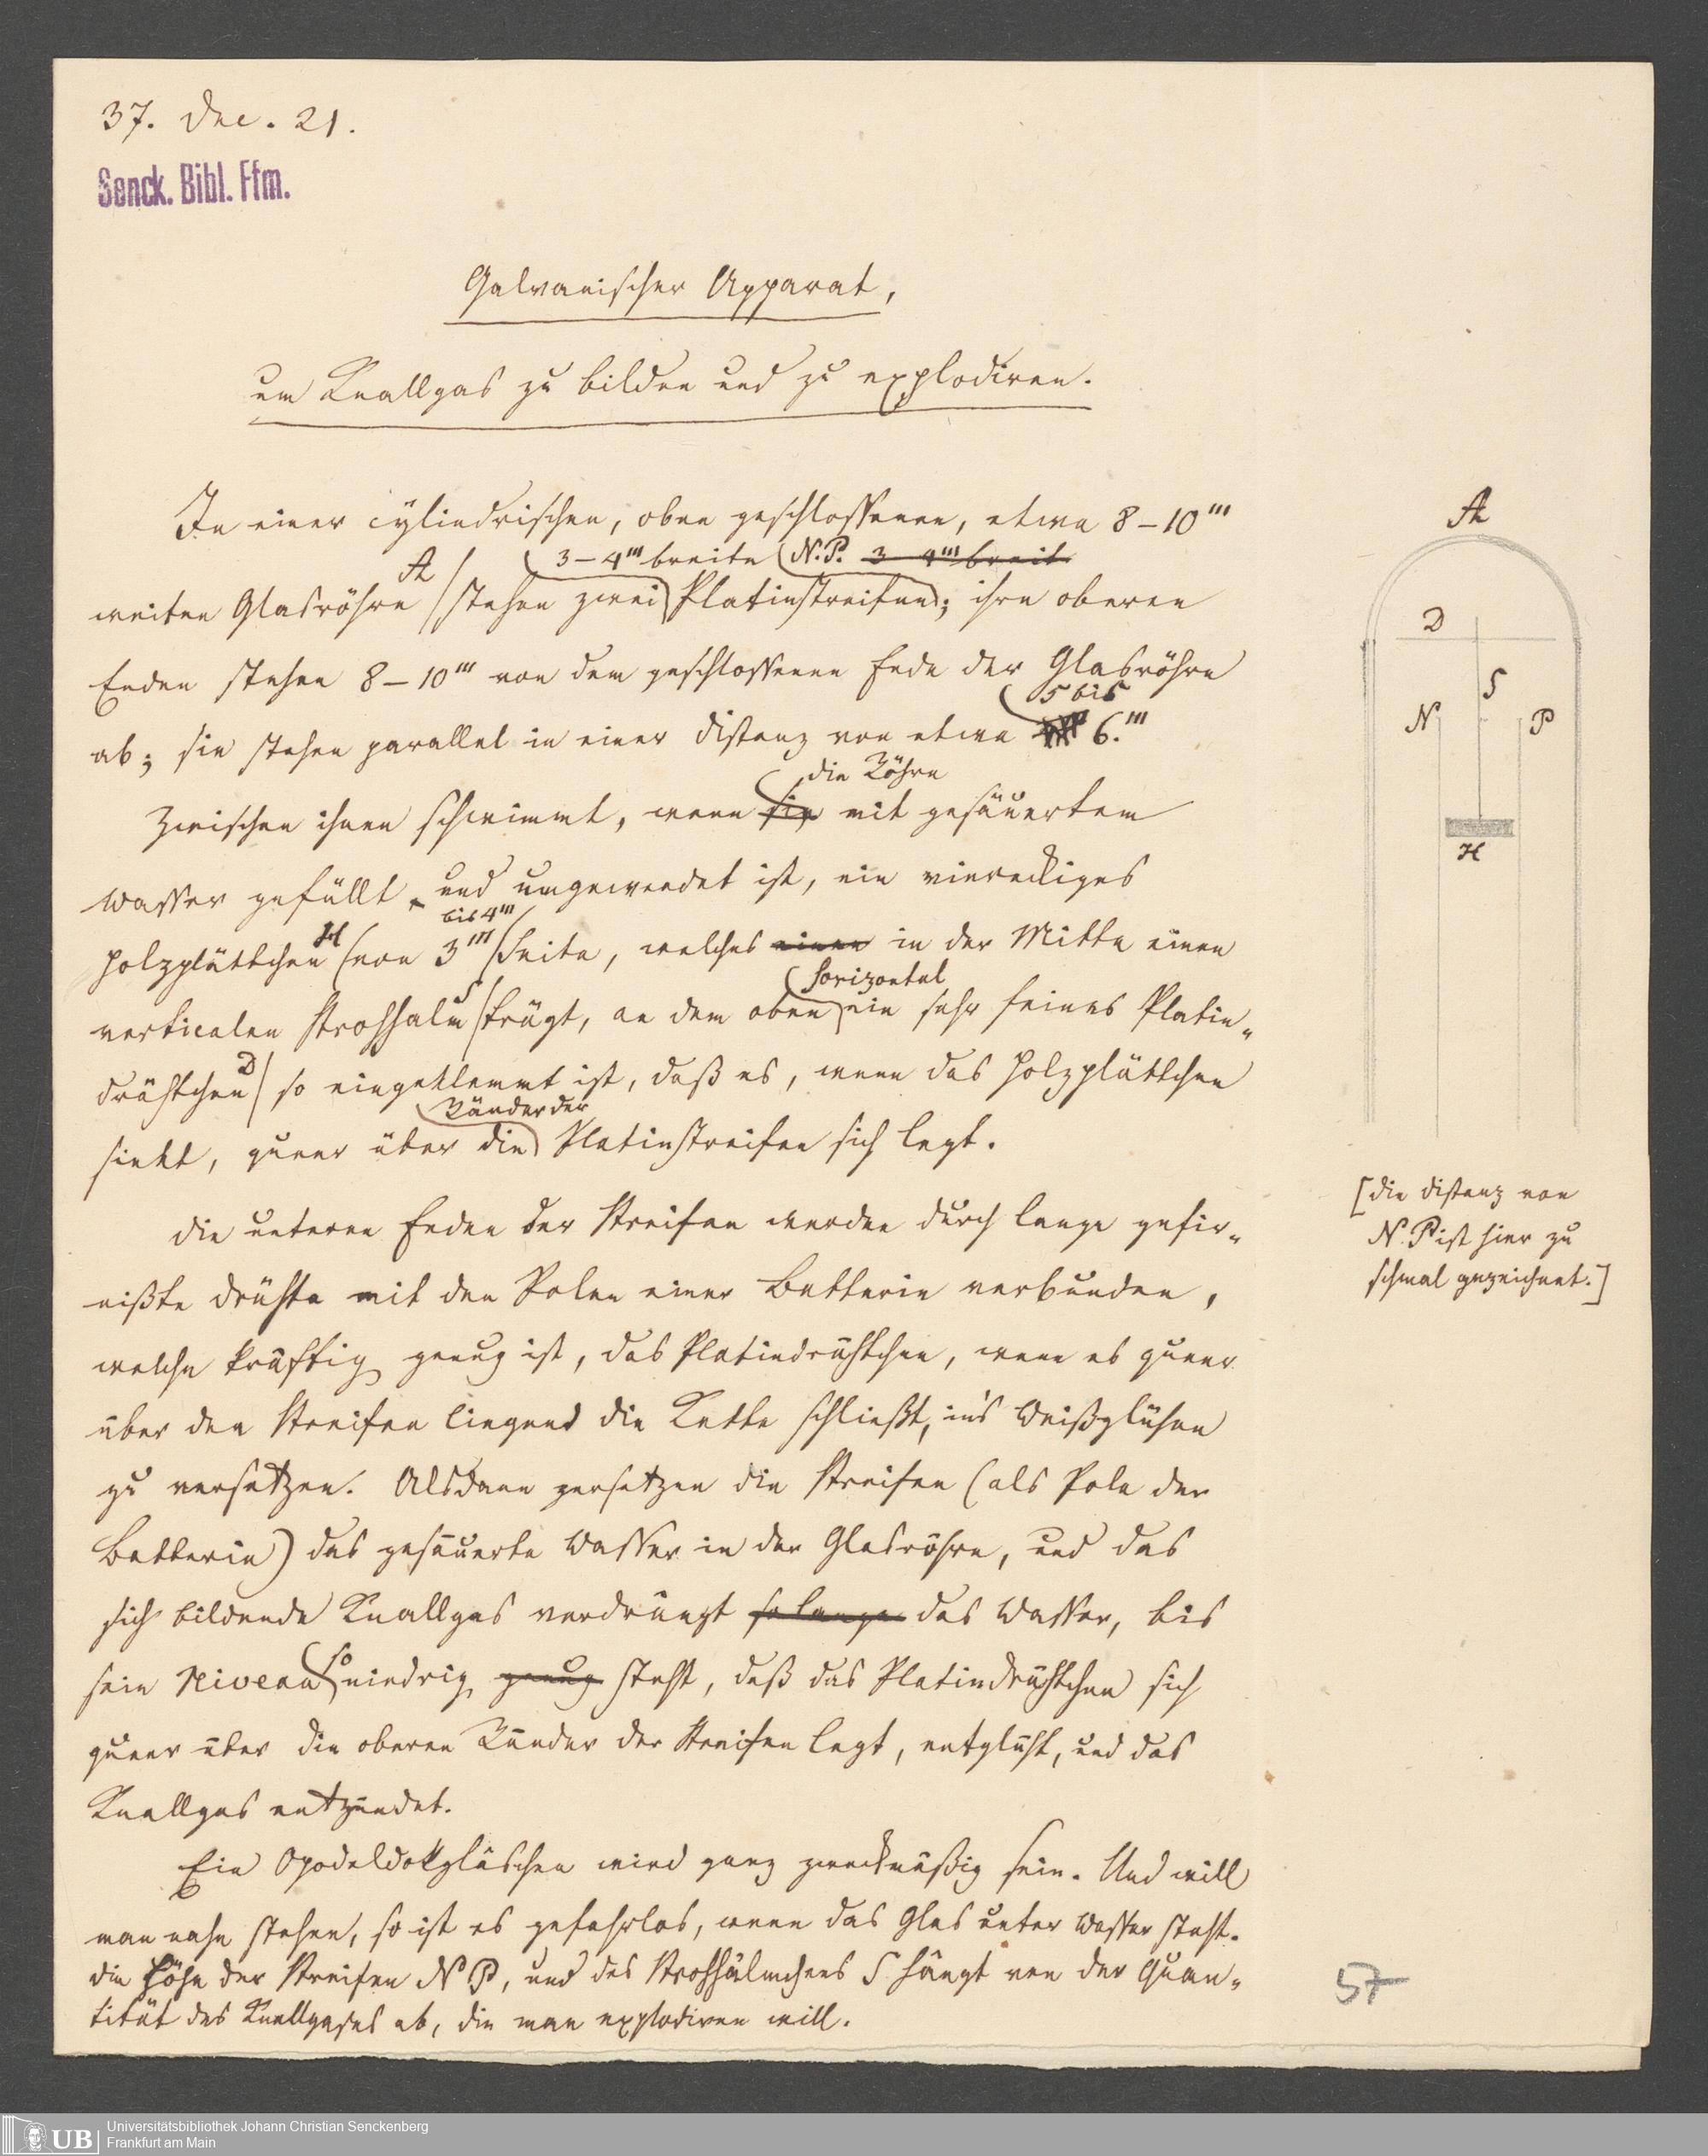 37. Dec. 21.
Senck. Bibl. Ffm.
Galvanischer Apparat,
um Knallgas zu bilden und zu explodiren.
In einer cylindrischen, oben geschlossenen, etwa 8–10'''
A 3–4''' breite N.P. 3 4''' breit
weiten Glasröhre stehen zwei Platinstreifen; ihre oberen
Enden stehen 8–10''' von dem geschlossenen Ende der Glasröhre
5 bis
ab; sie stehen parallel in einer Distanz von etwa 6.'''
die Röhre
Zwischen ihnen schwimmt, wenn sie mit gesäuertem
Wasser gefüllt und umgewendet ist, ein viereckiges
H bis 4'''
Holzplättchen von 3''' Seite, welches einen in der Mitte einen
S horizontal
verticalen Strohhalm trägt, an dem oben ein sehr feines Platin-
D
drähtchen so eingeklemmt ist, daß es, wenn das Holzplättchen
Ränder der
sinkt, queer über die Platinstreifen sich legt.
Die unteren Enden der Streifen werden durch lange gefir-
nißte Drähte mit den Polen einer Batterie verbunden,
welche kräftig genug ist, das Platindrähtchen, wenn es queer
über den Streifen liegend die Kette schließt, in's Weißglühen
zu versetzen. Alsdann zersetzen die Streifen (als Pole der
Batterie) das gesäuerte Wasser in der Glasröhre, und das
sich bildende Knallgas verdrängt so lange das Wasser, bis
so
sein Niveau niedrig genug steht, daß das Platindrähtchen sich
queer über die oberen Ränder der Streifen legt, entglüht, und das
Knallgas entzündet.
Ein Opodeldokgläschen wird ganz zweckmäßig sein. Und will
man nahe stehen, so ist es gefahrlos, wenn das Glas unter Wasser steht.
Die Höhe der Streifen N P, und des Strohhälmchens S hängt von der Quan-
tität des Knallgases ab, die man explodiren will.
A
D
S
N P
H
[die Distanz von
N. P ist hier zu
schmal gezeichnet.]
57
UB
Universitätsbibliothek Johann Christian Senckenberg
Frankfurt am Main